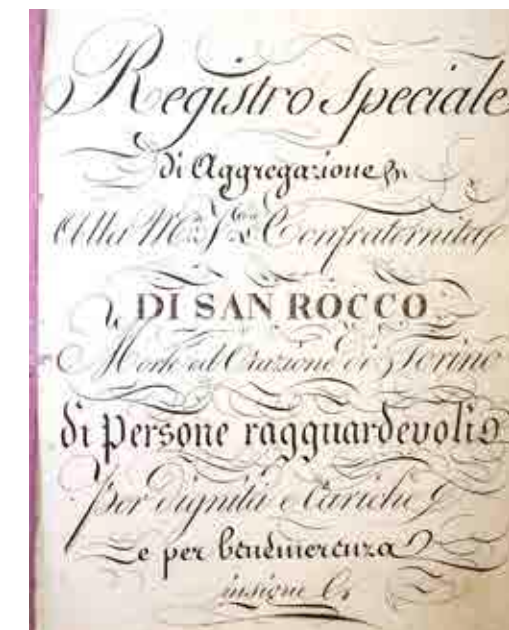 Registro Speciale
di Aggregazione
Alla M. V. Confraternita
DI SAN ROCCO
Morte ed Orazione di Torino
di Persone ragguardevoli
per dignità e Cariche
e per benemerenza
insigni